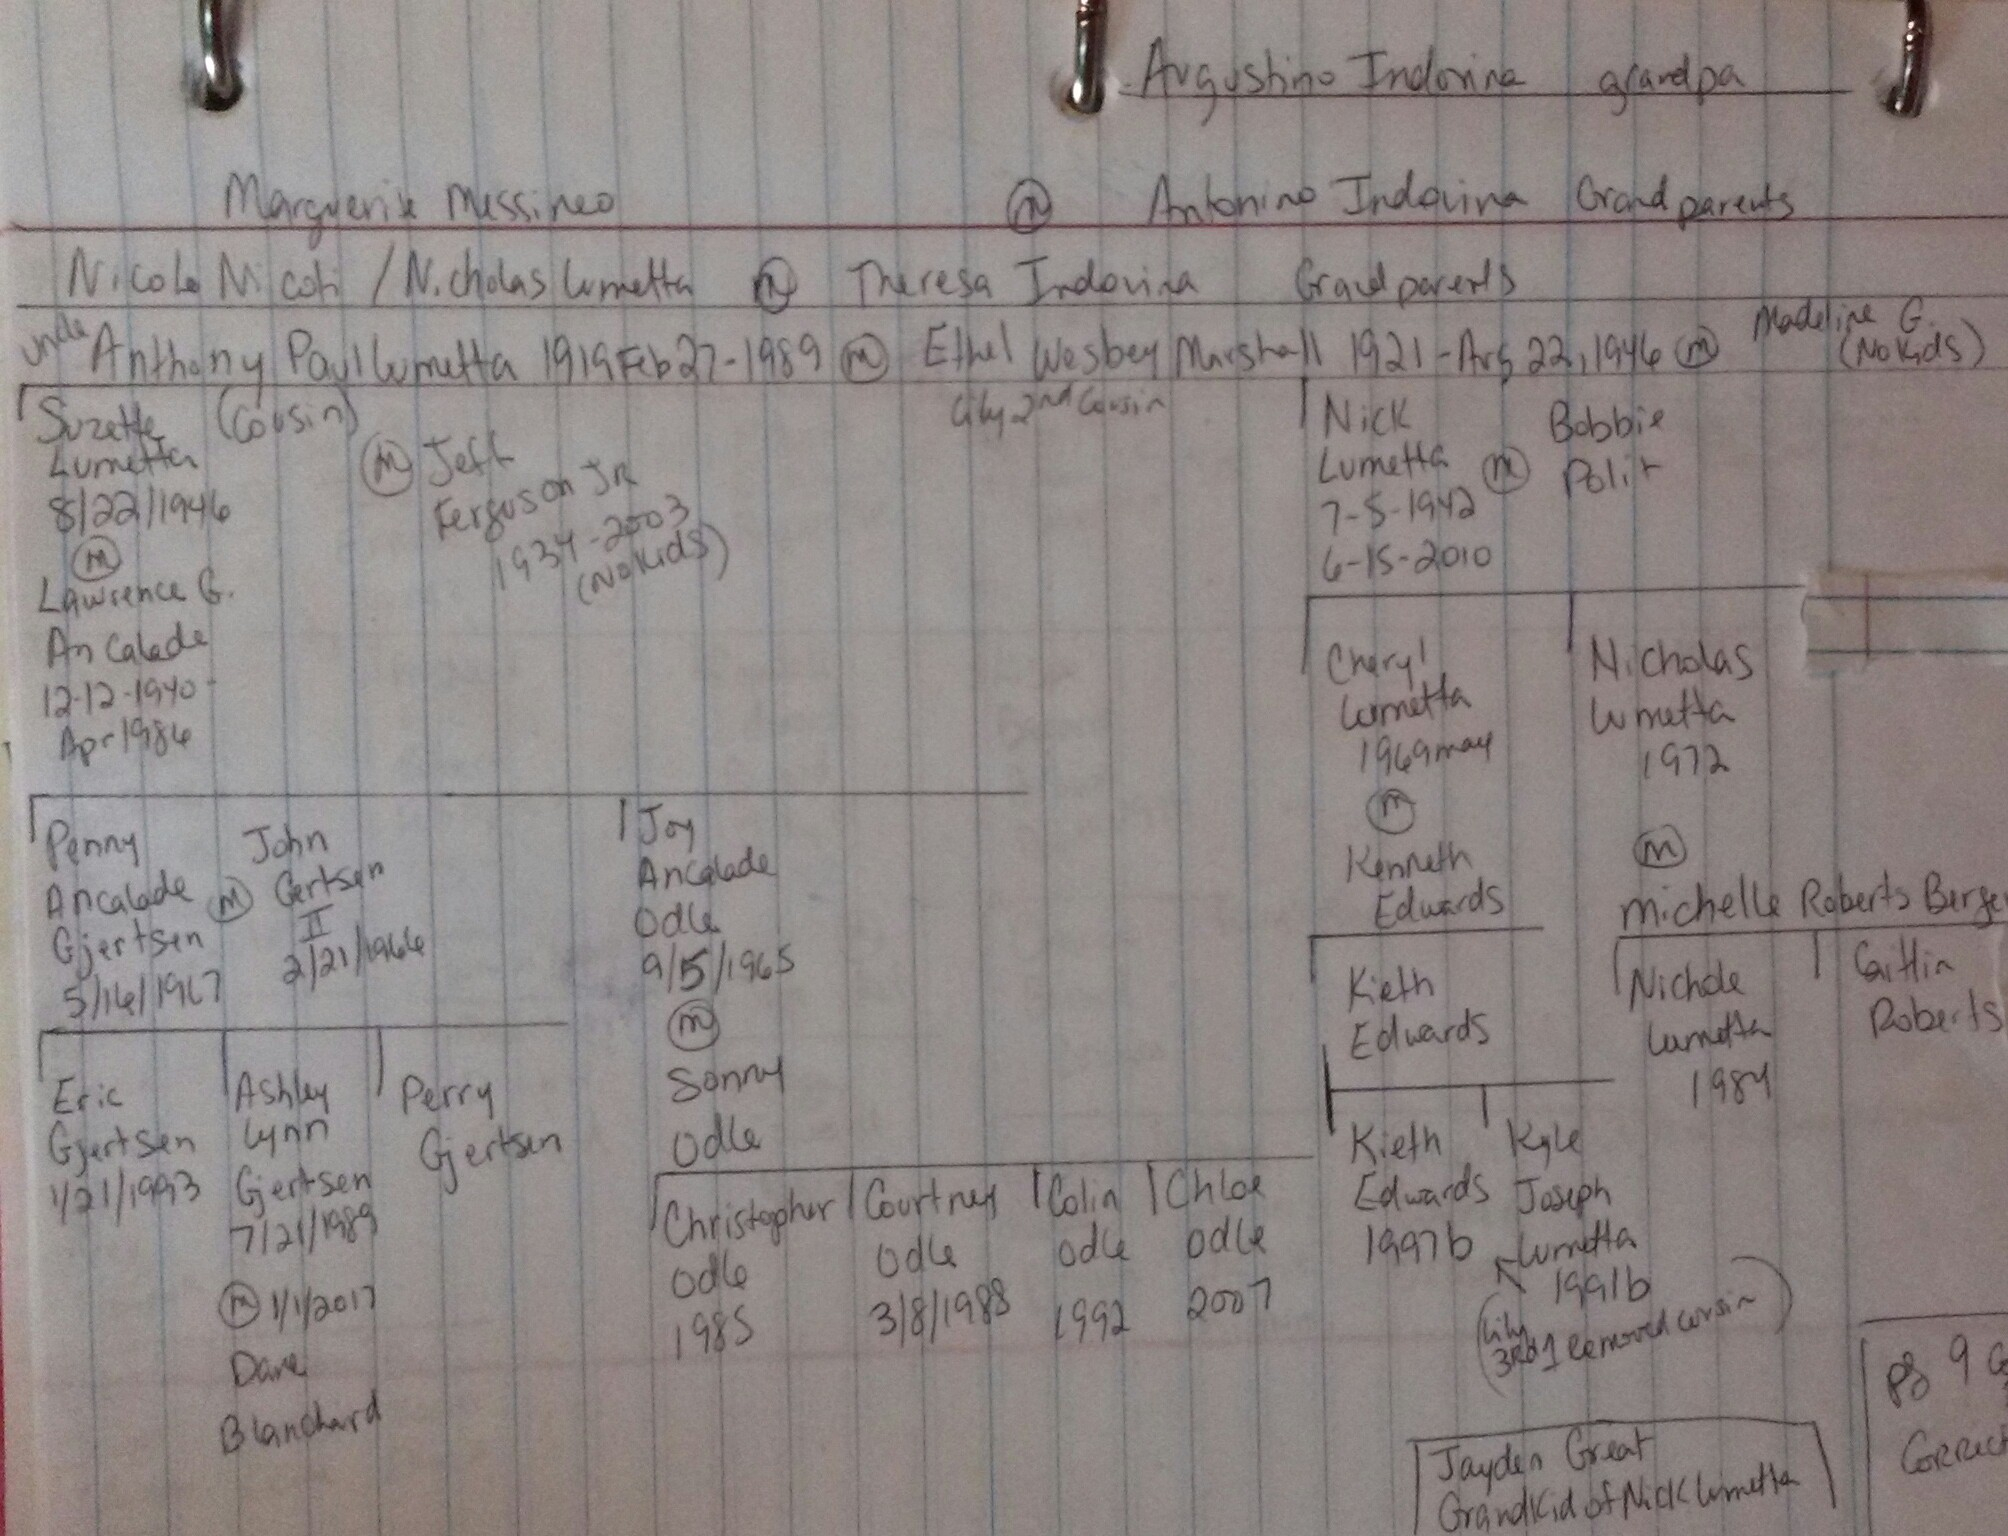 Augustino Indovina grandpa
Marguerite Messineo ⓜ Antonino Indovina Grandparents
Nicolo Nicoli / Nicholas Lumetta ⓜ Theresa Indovina Grandparents
uncle Anthony Paul Lumetta 1919 Feb 27-1989 ⓜ Ethel Wesbey Marshall 1921 - Aug 22, 1946 ⓜ Madeline G.
(No Kids)
Suzette (Cousin)
Lumetta
8/22/1946
ⓜ
Lawrence G.
Ancalade
12-12-1940
Apr 1986
ⓜ Jeff
Ferguson JR
1934-2003
(No Kids)
Lily 2nd Cousin
Nick
Lumetta
7-5-1942
6-15-2010
ⓜ
Bobbie
Polit
Penny
Ancalade
Gjertsen
5/16/1967
ⓜ
John
Gertsen
II
2/21/1966
Joy
Ancalade
Odle
9/5/1965
ⓜ
Sonny
Odle
Cheryl
Lumetta
1969 may
ⓜ
Kenneth
Edwards
Nicholas
Lumetta
1972
ⓜ
Michelle Roberts
Kieth
Edwards
Nichole
Lumetta
1984
Caitlin
Roberts
Eric
Gjertsen
1/21/1993
Ashley
Lynn
Gjertsen
7/21/1989
ⓜ 1/1/2017
Dane
Blanchard
Perry
Gjertsen
Christopher
Odle
1985
Courtney
Odle
3/8/1988
Colin
Odle
1992
Chloe
Odle
2007
Kieth
Edwards
1997b
Kyle
Joseph
Lumetta
1991b
(Lily
3rd 1 Removed cousin)
Jayden Great
GrandKid of Nick Lumetta
pg 9